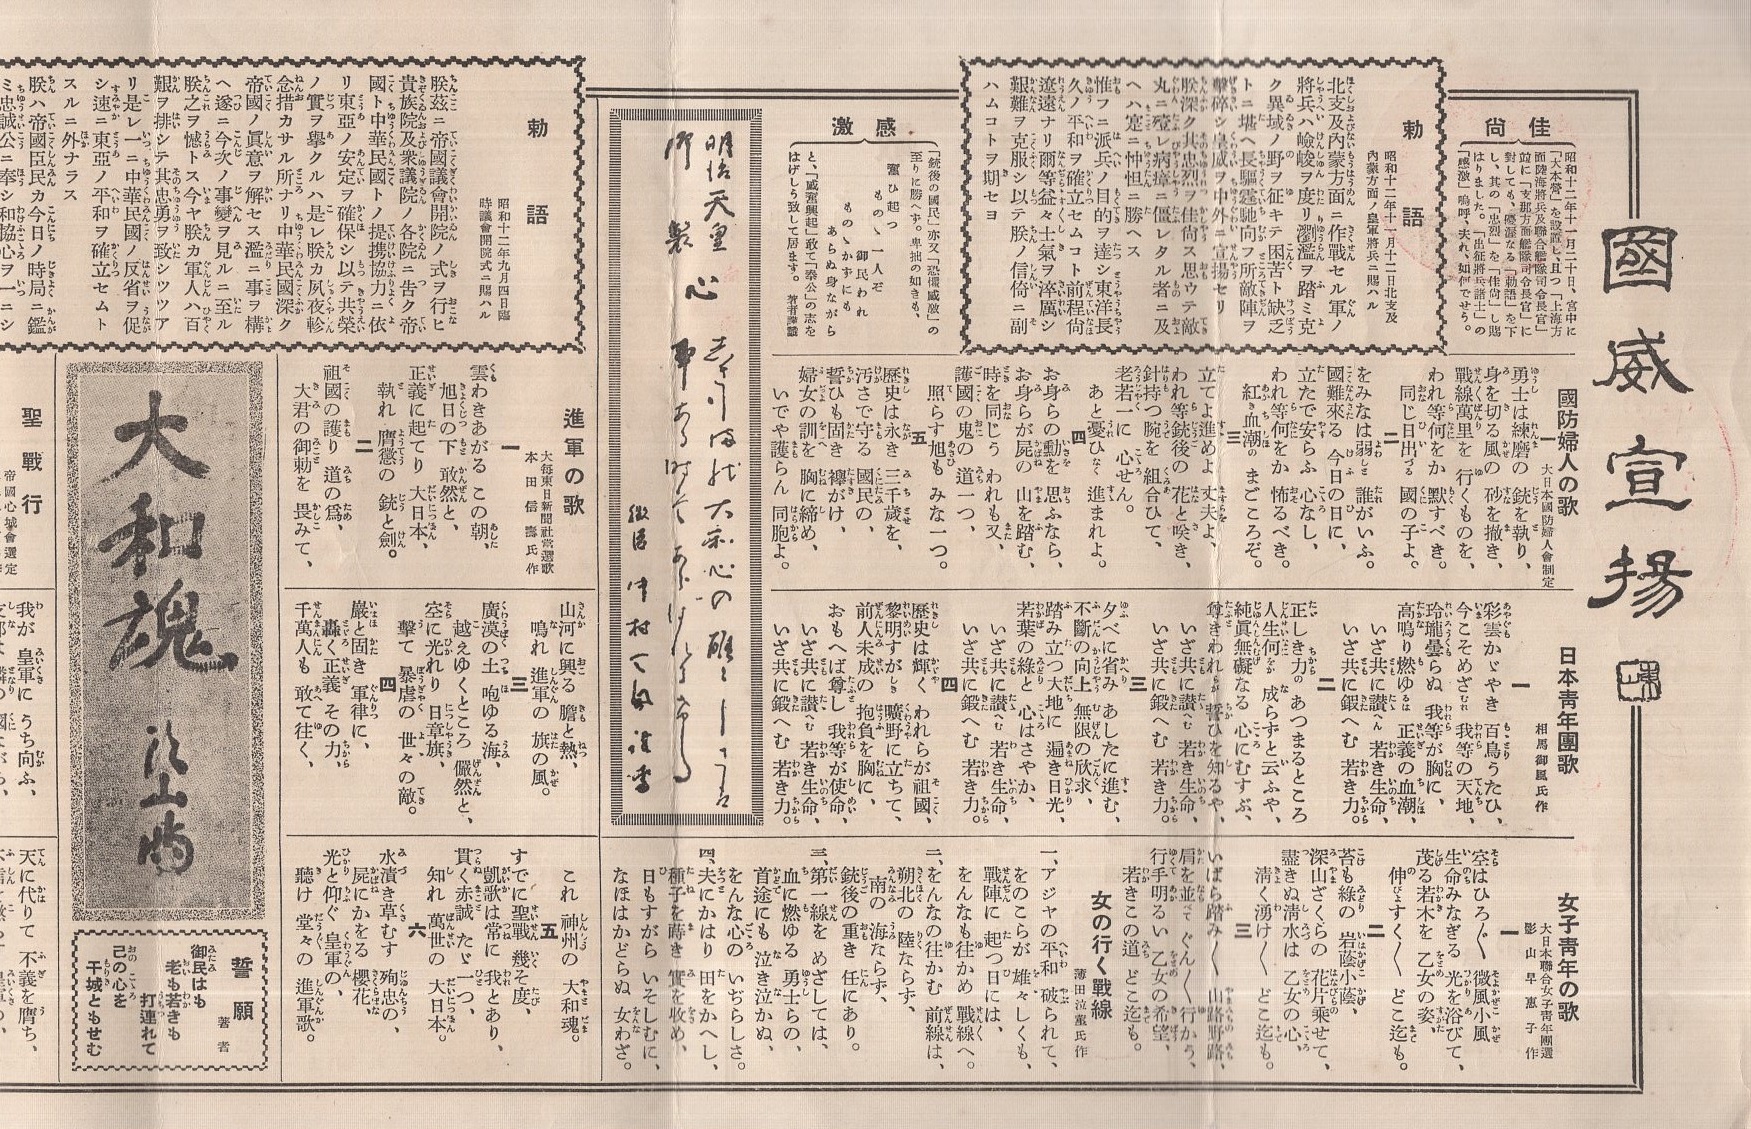 國威宣揚
佳尚
昭和十二年十一月二十日、宮中に
「大本營」を設置し、且つ「上海方
面陸海將兵及聯合艦隊司令長官」
並に「支那方面艦隊司令長官」に
對しても、優渥なる「勅語」を下
し、其の「忠烈」を「佳尚」し賜
はりました。「出征將兵諸士」の
「感激」嗚呼、夫れ、如何でせう。
勅語
昭和十二年十一月十二日北支及
內蒙方面ノ皇軍將兵ニ賜ハル
北支及內蒙方面ニ作戰セル軍ノ
將兵ハ嶮峻ヲ度リ瀏濫ヲ踏ミ克
ク異域ノ野ヲ征キテ困苦ト缺乏
トニ堪ヘ長驅遠馳向フ所敵陣ヲ
擊碎シ皇威ヲ中外ニ宣揚セリ
朕深ク其忠烈ヲ佳尚ス思ウテ敵
丸ニ殪レ病瘴ニ僵レタル者ニ及
ヘハ寔ニ忡怛ニ勝ヘス
惟フニ派兵ノ目的ヲ達シ東洋長
久ノ平和ヲ確立セムコト前程尙
遼遠ナリ爾等益々士氣ヲ淬厲シ
艱難ヲ克服シ以テ朕ノ信倚ニ副
ハムコトヲ期セヨ
感激
「銃後の國民」亦又「恐懼感激」の
至りに勝へず。卑拙の如きも、
奮ひ起つ
ものゝ一人ぞ
御民われ
ものゝかずにも
あらぬ身ながら
と、「感奮興起」敢て「奉公」の志を
はげしう致して居ます。著者謹識
明治天皇
御製
心
勅語
昭和十二年九月四日臨
時議會開院式ニ賜ハル
朕茲ニ帝國議會開院ノ式ヲ行ヒ
貴族院及衆議院ノ各院ニ告ク帝
國ト中華民國トノ提携協力ニ依
リ東亞ノ安定ヲ確保シ以テ共榮
ノ實ヲ擧クルハ是レ朕カ夙夜軫
念措カサル所ナリ中華民國深ク
帝國ノ眞意ヲ解セス濫ニ事ヲ構
ヘ遂ニ今次ノ事變ヲ見ルニ至ル
朕之ヲ憾トス今ヤ朕カ軍人ハ百
艱ヲ排シテ其忠勇ヲ致シツツア
リ是レ一ニ中華民國ノ反省ヲ促
シ速ニ東亞ノ平和ヲ確立セムト
スルニ外ナラス
朕ハ帝國臣民カ今日ノ時局ニ鑑
ミ忠誠公ニ奉シ和協心ヲ一ニシ
國防婦人の歌
大日本國防婦人會制定
一
勇士は練磨の 銃を執り、
身を切る風の 砂を撒き、
戰線萬里を 行くものを、
われ等何をか 默すべき。
同じ日出づる 國の子よ。
二
をみなは弱しと 誰がいふ。
國難來る 今日の日に、
立たで安らふ 心なし、
われ等何をか 怖るべき。
紅き血潮の まごころぞ。
三
立てよ進めよ 丈夫よ、
われ等銃後の 花と咲き、
針持つ腕を 組合ひて、
老若一に 心せん。
あと憂ひなく 進まれよ。
四
お身らの勳を 思ふなら、
お身らが屍の 山を踏む、
時を同じう われも又、
護國の鬼の 道一つ、
照らす旭も みな一つ。
五
歷史は永き 三千歲を、
汚さで守る 國民の、
誓ひも固き 襷がけ、
婦女の訓を 胸に締め、
いでや護らん 同胞よ。
日本靑年團歌
相馬御風氏作
一
彩雲かゞやき 百鳥うたひ、
今こそめざむれ 我等の天地、
玲瓏曇らぬ 我等が胸に、
高鳴り燃ゆる 正義の血潮、
いざ共に讃へん 若き生命、
いざ共に鍛へむ 若き力。
二
正しき力の あつまるところ
人生何をか 成らずと云ふや、
純眞無礙なる 心にむすぶ、
尊きわれらが 誓ひを知るや、
いざ共に讃へむ 若き生命、
いざ共に鍛へむ 若き力。
三
夕べに省み あしたに進む、
不斷の向上 無限の欣求、
踏み立つ大地に 遍き日光、
若葉の綠と 心はさやか、
いざ共に讃へむ 若き生命、
いざ共に鍛へむ 若き力。
四
歷史は輝く われらが祖國、
黎明すがしき 曠野に立ちて、
前人未成の 抱負を胸に、
おもへば尊し 我等が使命、
いざ共に讃へむ 若き生命、
いざ共に鍛へむ 若き力。
女子靑年の歌
大日本聯合女子靑年團選
影山早惠子作
一
空はひろ〴〵 微風小風
生命みなぎる 光を浴びて、
茂る若木を 乙女の姿、
伸びよすく〳〵 どこ迄も。
二
苔も綠の 岩蔭小蔭、
深山ざくらの 花片乘せて、
盡きぬ淸水は 乙女の心、
淸く湧け〳〵 どこ迄も。
三
いばら踏み〳〵 山路野路、
肩を並べて ぐん〳〵行かう、
行手明るい 乙女の希望、
若きこの道 どこ迄も。
女の行く戰線
薄田泣菫氏作
一、アジヤの平和 破られて、
をのこらが 雄々しくも、
戰陣に 起つ日には、
をんなも往かめ 戰線へ。
二、をんなの往かむ 前線は、
朔北の 陸ならず、
南の 海ならず、
銃後の重き 任にあり。
三、第一線を めざしては、
血に燃ゆる 勇士らの、
首途にも 泣き泣かぬ、
をんな心の いぢらしさ。
四、夫にかはり 田をかへし、
種子を蒔き 實を收め、
日もすがら いそしむに、
なほはかどらぬ 女わざ。
進軍の歌
大每東日新聞社當選歌
本田信壽氏作
一
雲わきあがる この朝、
旭日の下 敢然と、
正義に起てり 大日本、
執れ 膺懲の 銃と劍。
二
祖國の護り 道の爲、
大君の御勅を 畏みて、
山河に興る 膽と熱、
鳴れ 進軍の 旗の風。
三
廣漠の土 咆ゆる海、
越えゆくところ 儼然と、
空に光れり 日章旗、
擊て 暴虐の 世々の敵。
四
巖と固き 軍律に、
轟く正義 その力、
千萬人も 敢て往く、
これ 神州の 大和魂。
五
すでに聖戰 幾そ度、
凱歌は常に 我とあり、
貫く赤誠 たゞ一つ、
知れ 萬世の 大日本。
六
水漬き草むす 殉忠の、
屍にかをる 櫻花
光と仰ぐ 皇軍の、
聽け 堂々の 進軍歌。
大和魂
誓願
著者
御民はも
老も若きも
打連れて
己の心を
干城ともせむ
聖戰行
我が 皇軍に うち向ふ、
天に代りて 不義を膺ち、